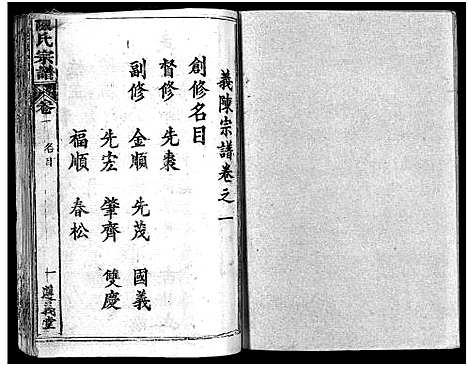 義陳宗譜卷之一
創修名目
督修 先棗
副修 金順 先茂 國義
先宏 肇齊 雙慶
福順 春松
陳氏宗譜
卷一 名目
一 遵義堂